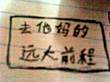 去他妈的
远大前程